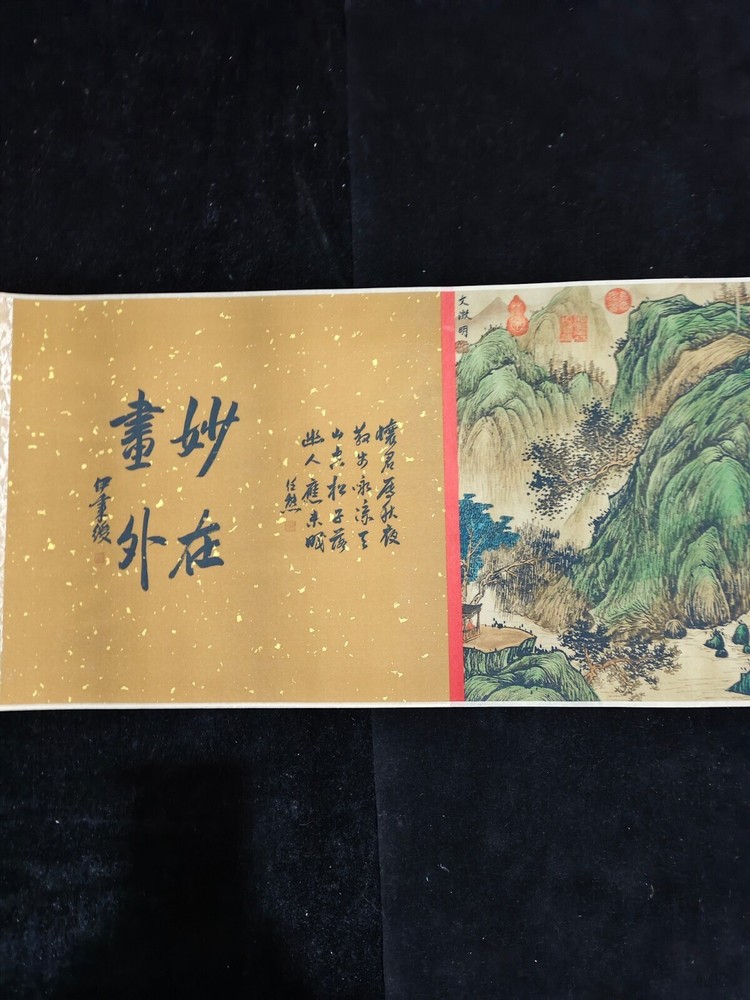 文徵明
懷君屬秋夜
散步詠涼天
山空松子落
幽人應未眠
妙在
畫外
伊秉綬